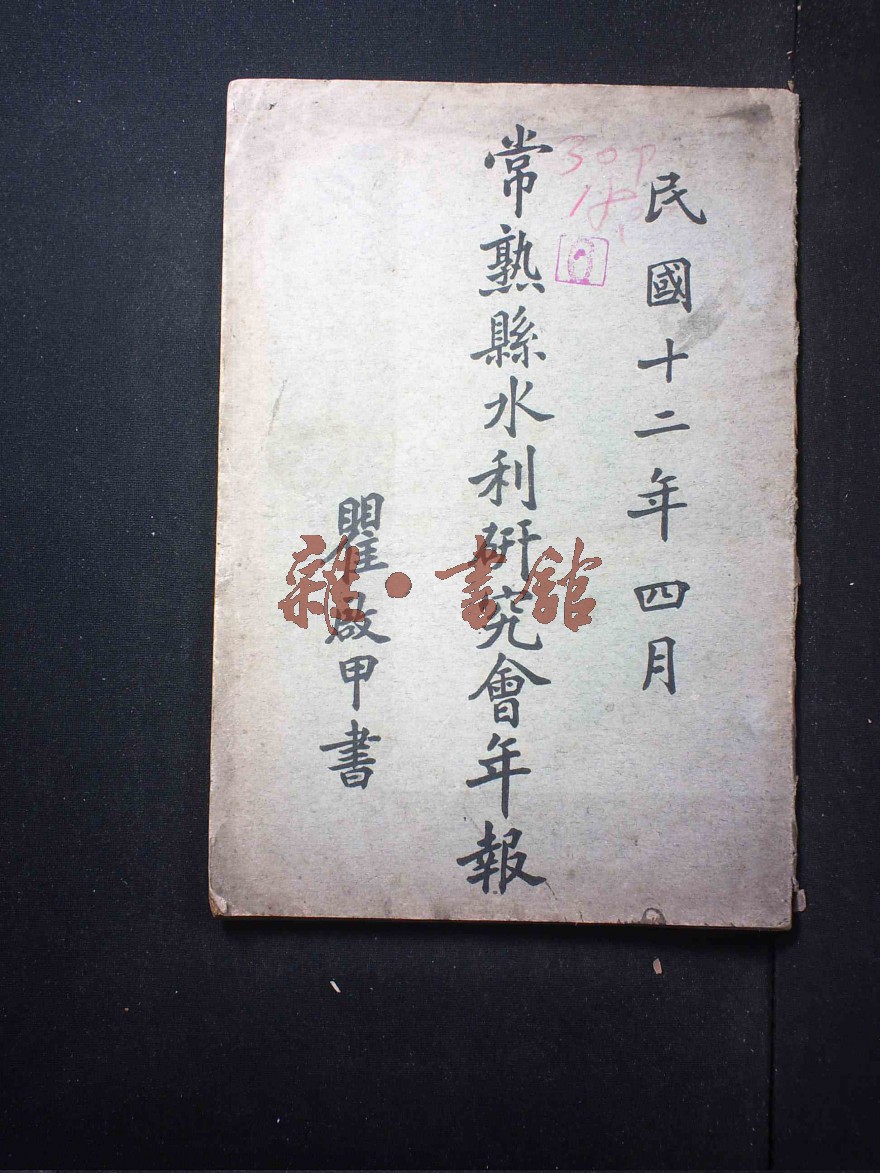 民國十二年四月
常熟縣水利研究會年報
瞿啟甲書
30P
雜·書館